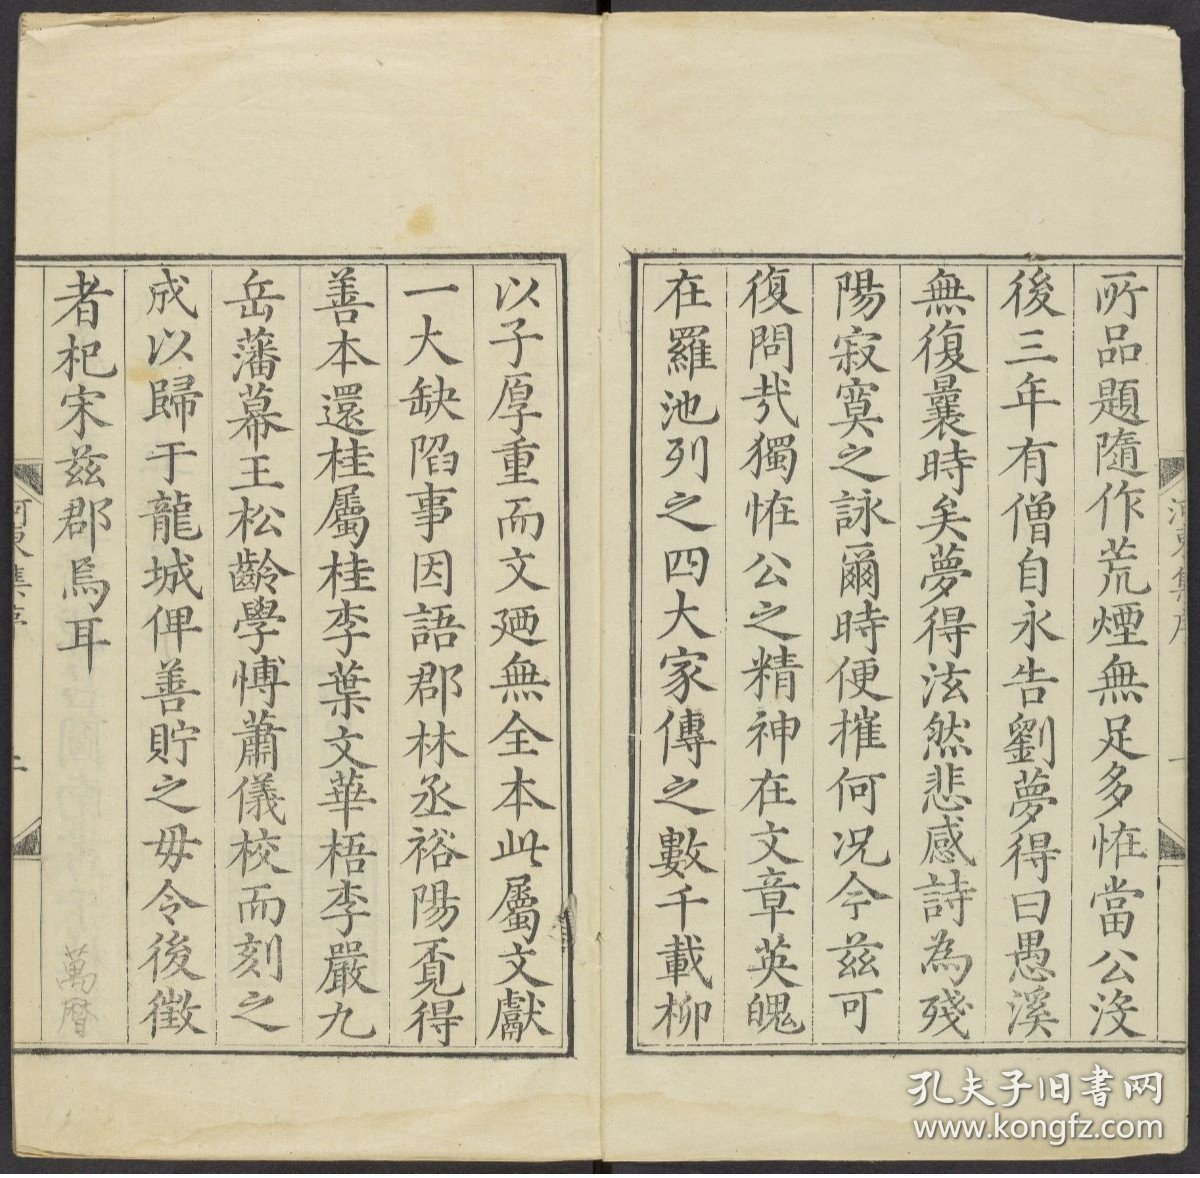 所品題隨作荒煙無足多恠當公沒
後三年有僧自永告劉夢得曰愚溪
無復曩時矣夢得泫然悲感詩為殘
陽寂寞之詠爾時便摧何況今茲可
復問㢤獨恠公之精神在文章英魄
在羅池列之四大家傳之數千載柳
以子厚重而文廼無全本此屬文獻
一大缺陷事因語郡林丞裕陽覔得
善本還桂屬桂李葉文華梧李嚴九
岳藩幕王松齡學博蕭儀校而刻之
成以歸于龍城俾善貯之毋令後徵
者杞宋茲郡焉耳
河東集序
二
萬曆
孔夫子旧书网
www.kongfz.com